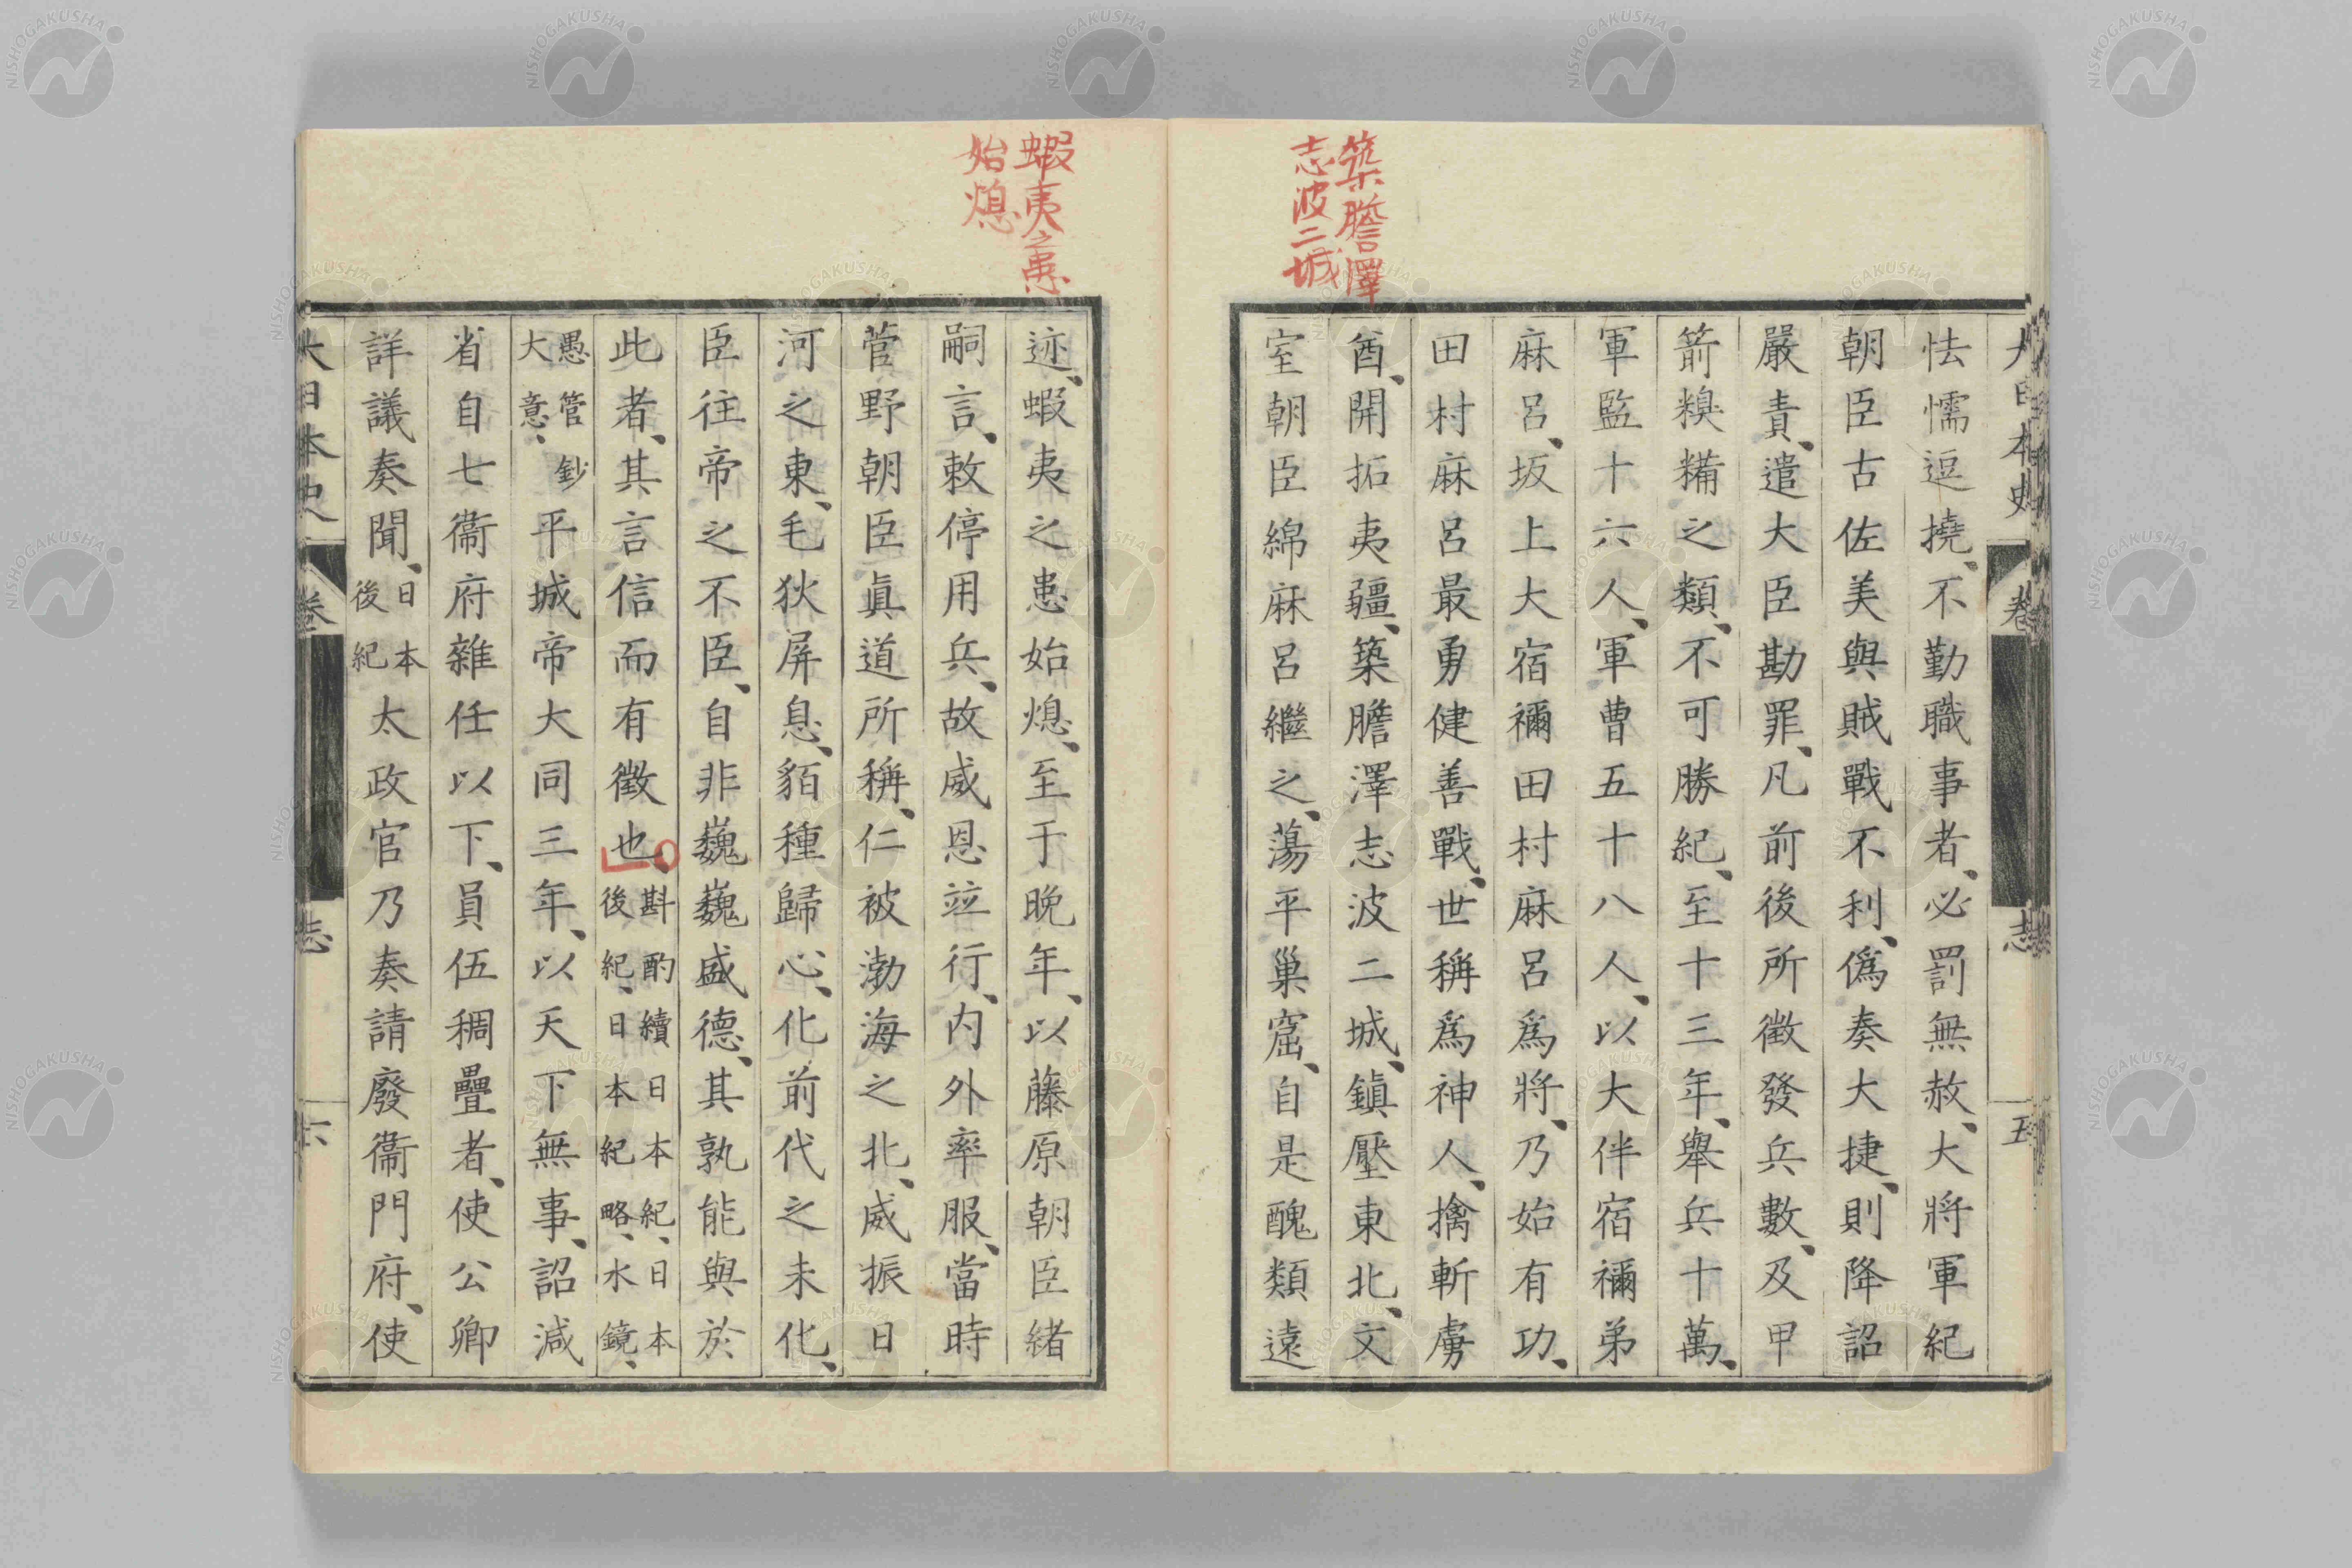 築膽澤
志波二城
大日本史 卷 志 五
怯懦逗撓、不勤職事者、必罰無赦、大將軍紀
朝臣古佐美與賊戰不利、僞奏大捷、則降詔
嚴責、遣大臣勘罪、凡前後所徵發兵數、及甲
箭糗糒之類、不可勝紀、至十三年、舉兵十萬、
軍監十六人、軍曹五十八人、以大伴宿禰弟
麻呂、坂上大宿禰田村麻呂爲將、乃始有功、
田村麻呂最勇健善戰、世稱爲神人、擒斬虜
酋、開拓夷疆、築膽澤志波二城、鎮壓東北、文
室朝臣綿麻呂繼之、蕩平巢窟、自是醜類遠
蝦夷之患
始熄
迹、蝦夷之患始熄、至于晩年、以藤原朝臣緒
嗣言、敕停用兵、故威恩竝行、内外率服、當時
菅野朝臣眞道所稱、仁被渤海之北、威振日
河之東、毛狄屏息、貊種歸心、化前代之未化、
臣往帝之不臣、自非巍巍盛德、其孰能與於
此者、其言信而有徵也、斟酌續日本紀、日本後紀、日本紀略、水鏡、
愚管鈔大意、平城帝大同三年、以天下無事、詔減
省自七衞府雜任以下、員伍稠疊者、使公卿
詳議奏聞、日本後紀太政官乃奏請廢衞門府、使
大日本史 卷 志 六
NISHOGAKUSHA